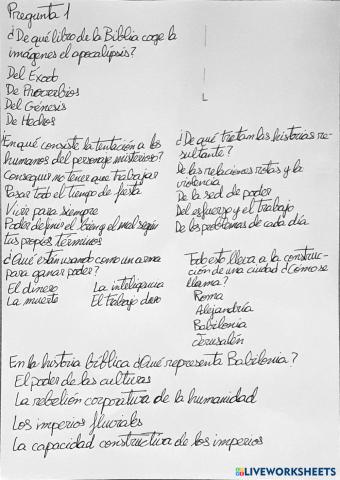 Pregunta 1
¿De qué libro de la Biblia coge la
imágenes el apocalipsis?
Del Exodo
De Proverbios
Del Génesis
De Hechos
¿En qué consiste la tentación a los
humanos del personaje misterioso?
Conseguir no tener que trabajar
Pasar todo el tiempo de fiesta
Vivir para siempre
Poder definir el bien y el mal según
tus propios términos
¿Qué están usando como un arma
para ganar poder?
El dinero La inteligencia
La muerte El trabajo duro
¿De qué tratan las historias re-
sultante?
De las relaciones rotas y la
violencia
De la sed de poder
Del esfuerzo y el trabajo
De los problemas de cada día
Todo esto lleva a la construc-
ción de una ciudad ¿Cómo se
llama?
Roma
Alejandría
Babilonia
Jerusalén
En la historia bíblica ¿Qué representa Babilonia?
El poder de las culturas
La rebelión corporativa de la humanidad
Los imperios fluviales
La capacidad constructiva de los imperios
LIVEWORKSHEETS